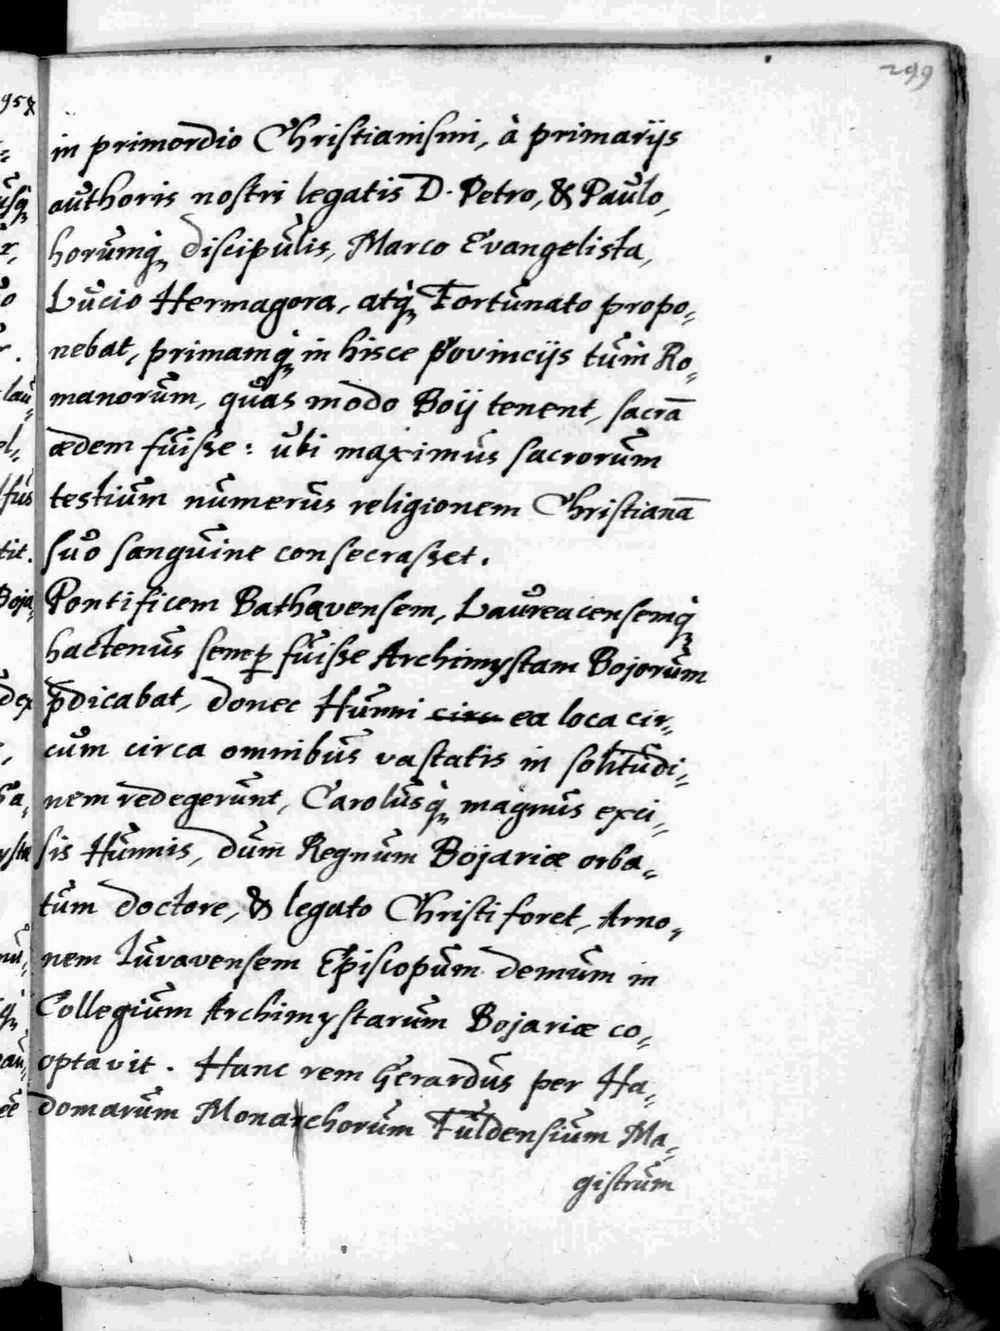 299
in primordio Christianismi, à primarijs
authoris nostri legatis D. Petro, & Paulo,
horumq, discipulis, Marco Evangelista,
Lucio Hermagora, atq, Fortunato propo-
nebat, primamq, in hisce Provincijs tum Ro-
manorum, quas modo Boij tenent, sacrā
ædem fuisse: ubi maximus sacrorum
testium numerus religionem Christianā
suo sanguine consecrasset.
Pontificem Bathavensem, Laureacensemq,
hactenus semp fuisse Archimystam Bojorum
p̄dicabat, donec Hunni circu ea loca cir-
cum circa omnibus vastatis in solitudi-
nem redegerunt, Carolusq, magnus exci-
sis Hunnis, dum Regnum Bojariæ orba-
tum doctore, & legato Christi foret, Arno-
nem Iuvavensem Episcopum demum in
Collegium Archimystarum Bojariæ co-
optavit. Hanc rem Gerardus per Ha-
domarum Monarchorum Fuldensium Ma-
gistrum